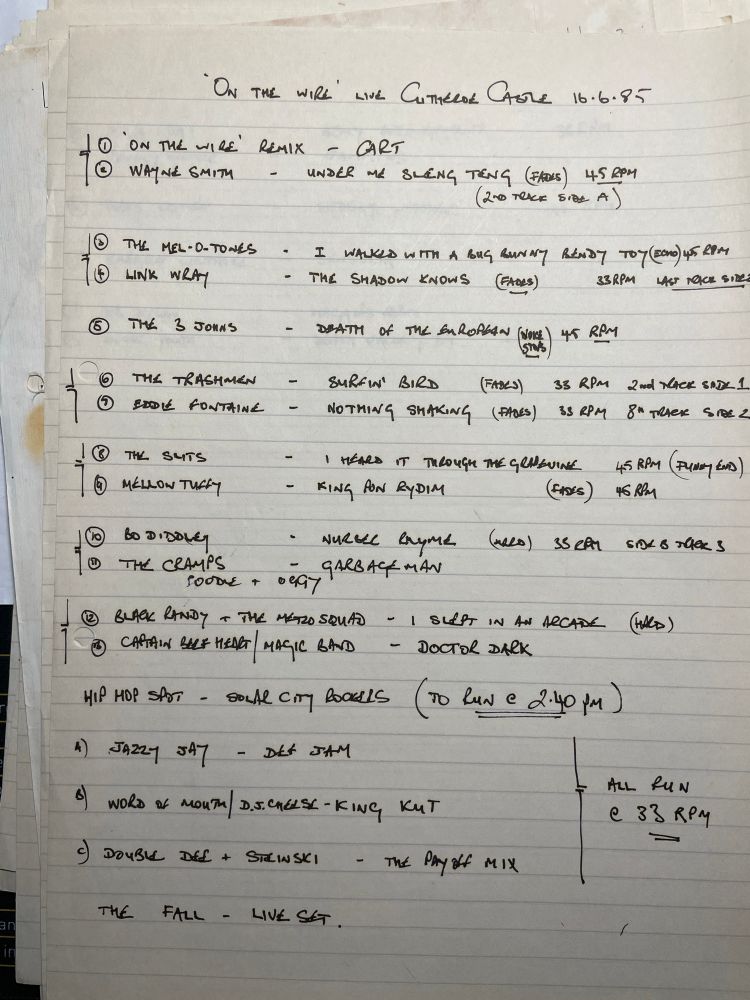 'ON THE WIRE' LIVE CLITHEROE CASTLE 16.6.85
① 'ON THE WIRE' REMIX - CART
② WAYNE SMITH - UNDER ME SLENG TENG (FADES) 45 RPM
(2ND TRACK SIDE A)
③ THE MEL-O-TONES - I WALKED WITH A BUG BUNNY BENDY TOY (ECHO) 45 RPM
④ LINK WRAY - THE SHADOW KNOWS (FADES) 33 RPM LAST TRACK SIDE 2
⑤ THE 3 JOHNS - DEATH OF THE EUROPEAN (VOICE STOPS) 45 RPM
⑥ THE TRASHMEN - SURFIN' BIRD (FADES) 33 RPM 2nd TRACK SIDE 1
⑦ EDDIE FONTAINE - NOTHING SHAKING (FADES) 33 RPM 8th TRACK SIDE 2
⑧ THE SLITS - I HEARD IT THROUGH THE GRAPEVINE 45 RPM (FUNNY END)
⑨ MELLOW TUFFY - KING PON RYDIM (FADES) 45 RPM
⑩ BO DIDDLEY - NURSERY RHYME (HARD) 33 RPM SIDE B TRACK 3
⑪ THE CRAMPS - GARBAGEMAN
POODLE +
⑫ BLACK RANDY + THE METROSQUAD - I SLEPT IN AN ARCADE (HARD)
⑬ CAPTAIN BEEFHEART / MAGIC BAND - DOCTOR DARK
HIP HOP SPOT - SOLAR CITY ROCKERS (TO RUN @ 2.40 pm)
A) JAZZY JAY - DEF JAM
B) WORD OF MOUTH / D.J. CHEESE - KING KUT
C) DOUBLE DEE + STEINSKI - THE PAYOFF MIX
ALL RUN
@ 33 RPM
THE FALL - LIVE SET.